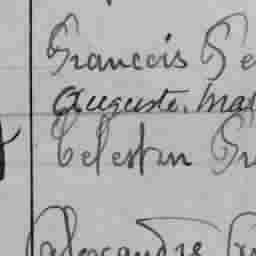 Francois Ge
Auguste, Mat
Celestin Gr
Alexandre